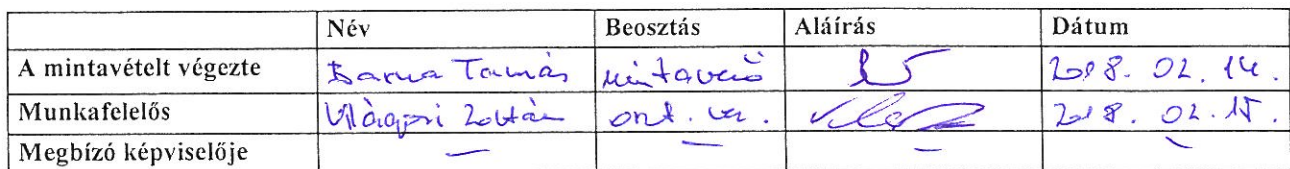 Név Beosztás Aláírás Dátum
A mintavételt végezte Barna Tamás mintavevő 2018. 02. 14.
Munkafelelős Zoltán oszt. vez. 2018. 02. 15.
Megbízó képviselője — — — —